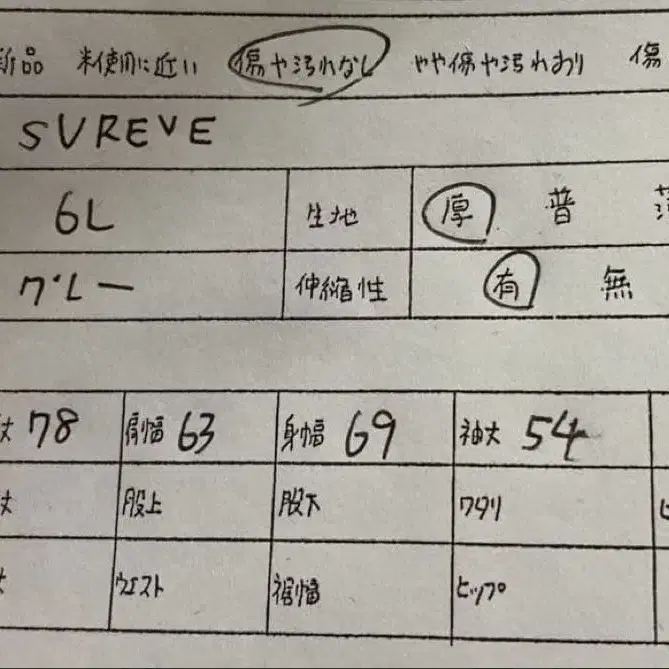 新品 未使用に近い 傷や汚れなし やや傷や汚れあり 傷
SUREVE
6L 生地 厚 普
グレー 伸縮性 有 無
丈 78 肩幅 63 身幅 69 袖丈 54
丈 股上 股下 ワタリ ヒ
ウエスト 裾幅 ヒップ